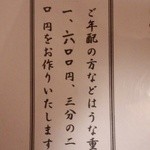 ご年配の方などはうな重
一、六〇〇円、三分の二
〇円をお作りいたします